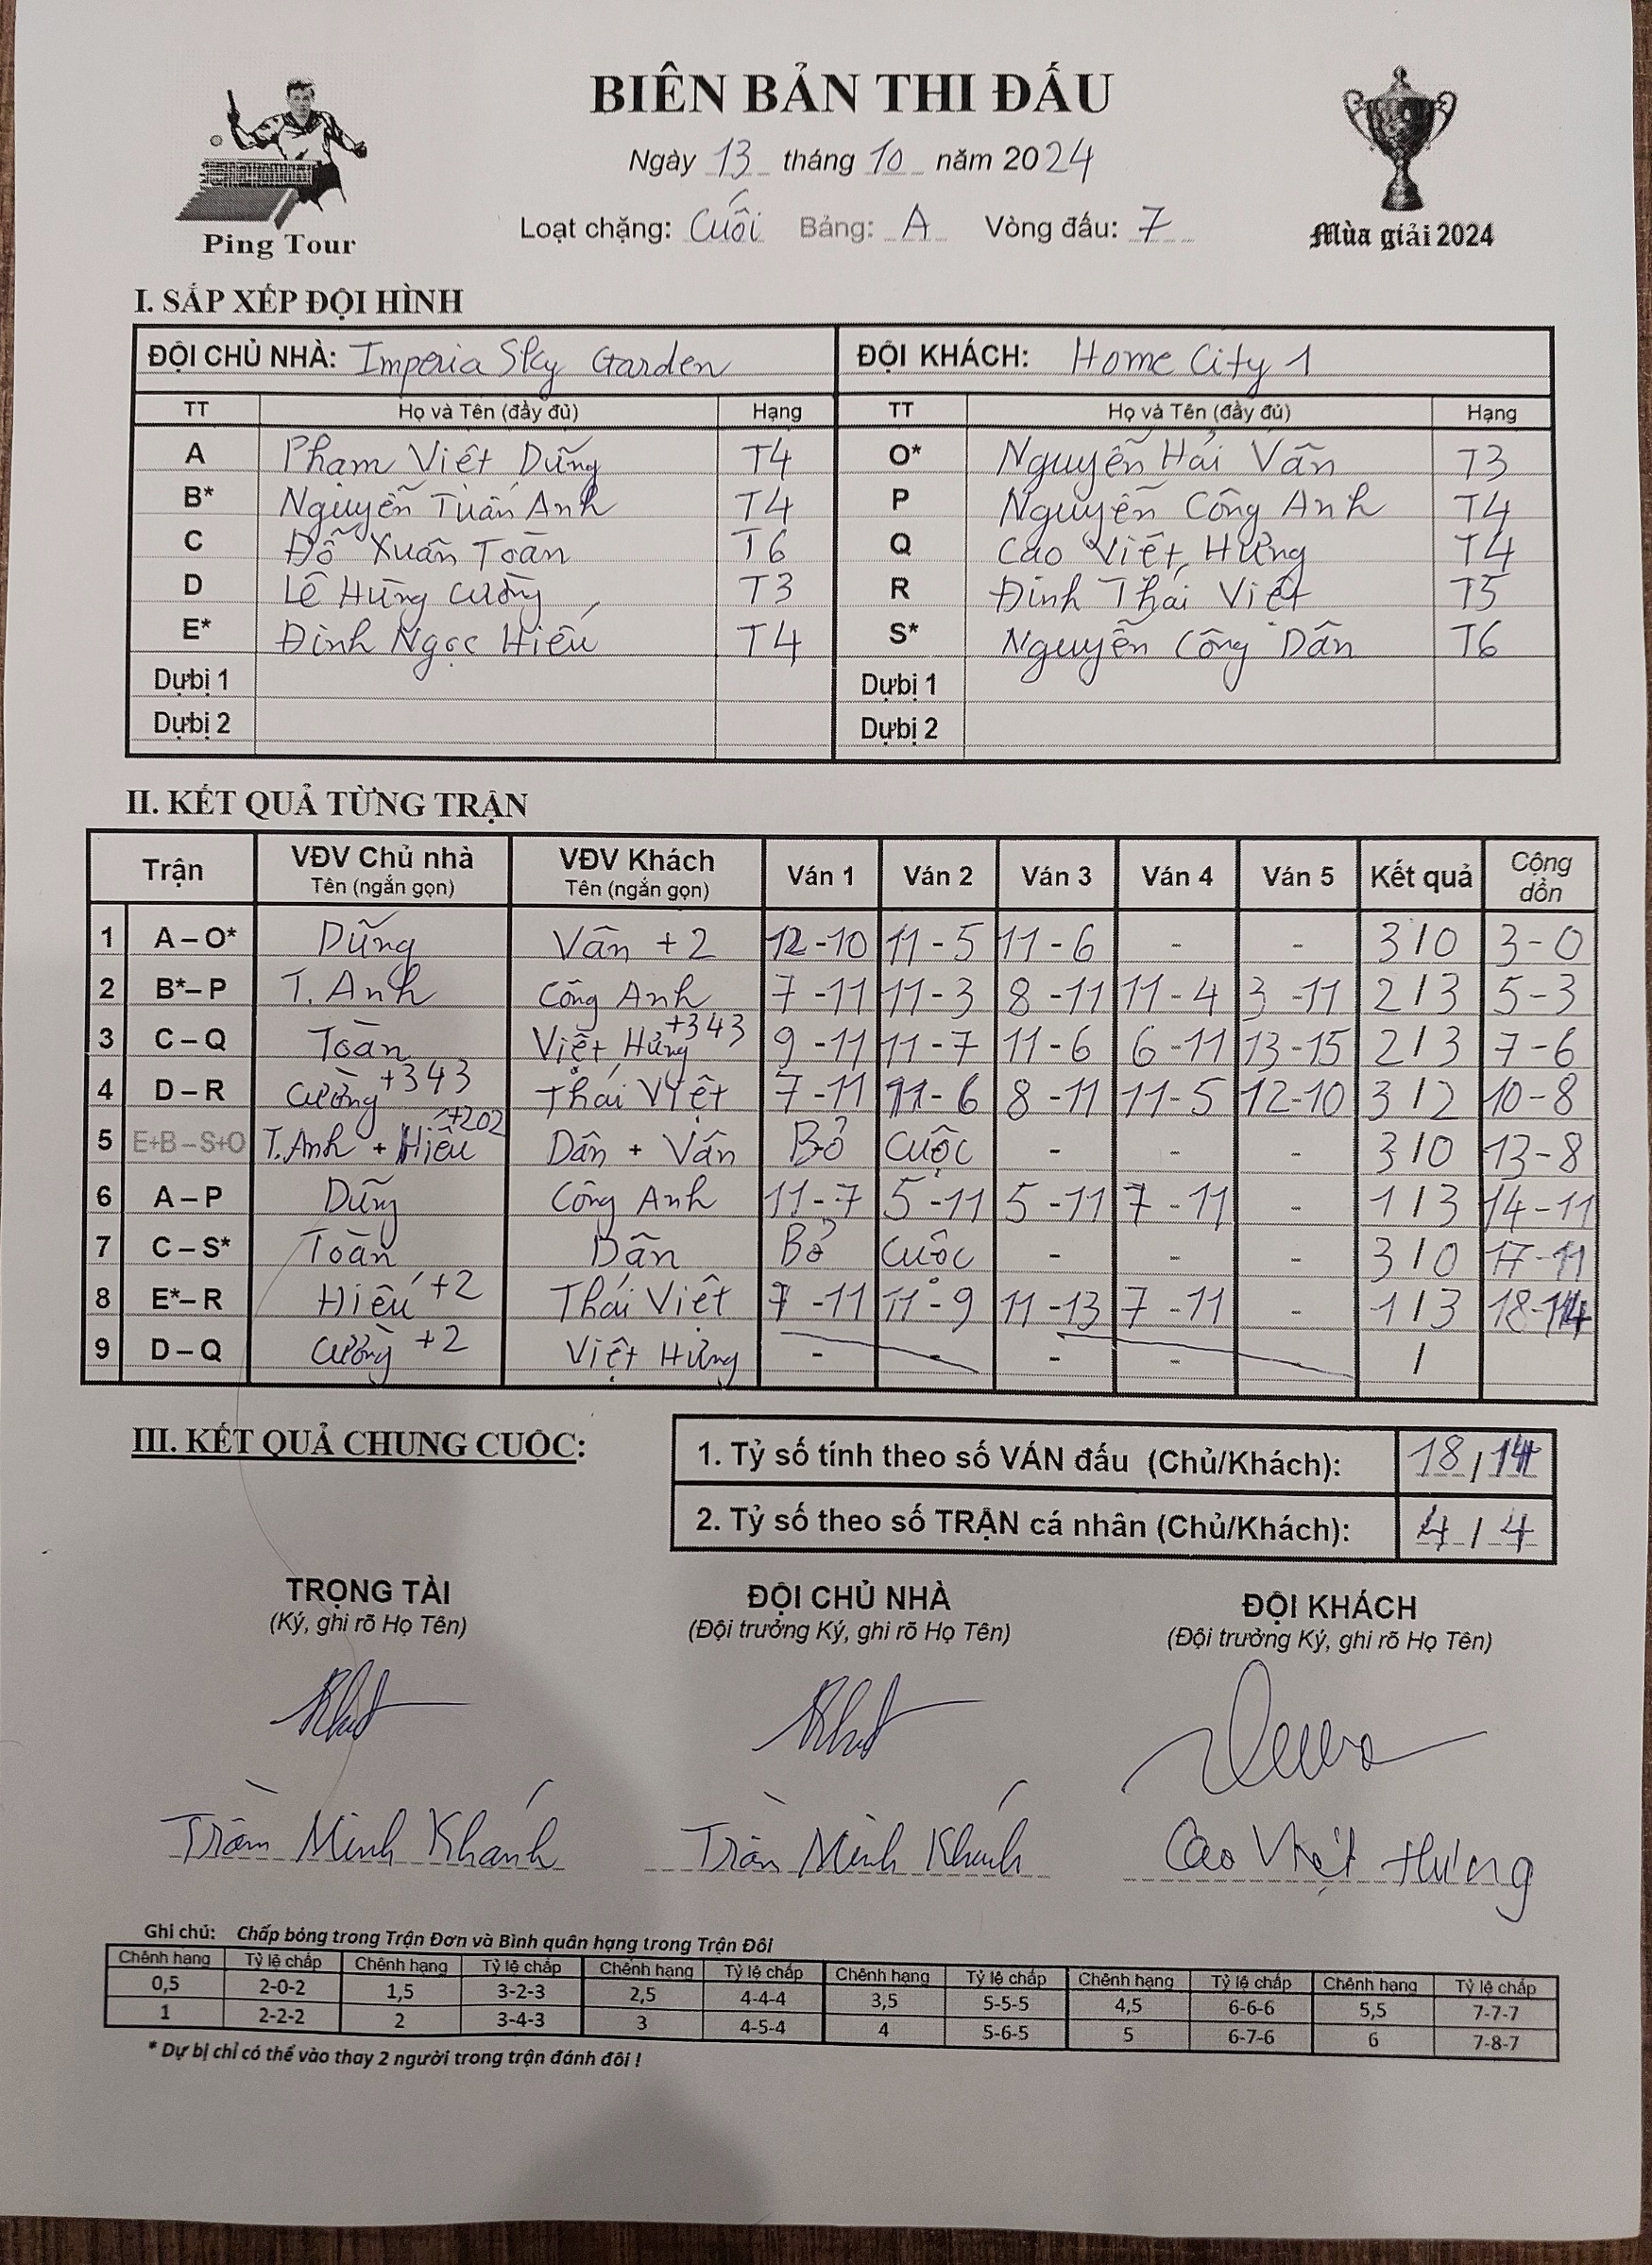 BIÊN BẢN THI ĐẤU
Ngày 13 tháng 10 năm 2024
Loạt chặng: Cuối Bảng: A Vòng đấu: 7
Ping Tour
Mùa giải 2024
I. SẮP XẾP ĐỘI HÌNH
ĐỘI CHỦ NHÀ: Imperia Sky Garden ĐỘI KHÁCH: Home City 1
TT Họ và Tên (đầy đủ) Hạng TT Họ và Tên (đầy đủ) Hạng
A Phạm Viết Dũng T4 O* Nguyễn Hải Vân T3
B* Nguyễn Tuấn Anh T4 P Nguyễn Công Anh T4
C Đỗ Xuân Toàn T6 Q Cao Việt Hưng T4
D Lê Hùng Cường T3 R Đinh Thái Việt T5
E* Đinh Ngọc Hiếu T4 S* Nguyễn Công Dân T6
Dự bị 1 Dự bị 1
Dự bị 2 Dự bị 2
II. KẾT QUẢ TỪNG TRẬN
Trận VĐV Chủ nhà Tên (ngắn gọn) VĐV Khách Tên (ngắn gọn) Ván 1 Ván 2 Ván 3 Ván 4 Ván 5 Kết quả Cộng dồn
1 A – O* Dũng Vân +2 12-10 11-5 11-6 - - 3/0 3-0
2 B*– P T. Anh Công Anh 7-11 11-3 8-11 11-4 3-11 2/3 5-3
3 C – Q Toàn Việt Hưng +343 9-11 11-7 11-6 6-11 13-15 2/3 7-6
4 D – R Cường +343 Thái Việt 7-11 11-6 8-11 11-5 12-10 3/2 10-8
5 E+B – S+O T.Anh + Hiếu +202 Dân + Vân Bỏ Cuộc - - - 3/0 13-8
6 A – P Dũng Công Anh 11-7 5-11 5-11 7-11 - 1/3 14-11
7 C – S* Toàn Dân Bỏ Cuộc - - - 3/0 17-11
8 E*– R Hiếu +2 Thái Việt 7-11 11-9 11-13 7-11 - 1/3 18-14
9 D – Q Cường +2 Việt Hưng - - - - - /
III. KẾT QUẢ CHUNG CUỘC:
1. Tỷ số tính theo số VÁN đấu (Chủ/Khách): 18/14
2. Tỷ số theo số TRẬN cá nhân (Chủ/Khách): 4/4
TRỌNG TÀI ĐỘI CHỦ NHÀ ĐỘI KHÁCH
(Ký, ghi rõ Họ Tên) (Đội trưởng Ký, ghi rõ Họ Tên) (Đội trưởng Ký, ghi rõ Họ Tên)
Trần Minh Khánh Trần Minh Khánh Cao Việt Hưng
Ghi chú: Chấp bóng trong Trận Đơn và Bình quân hạng trong Trận Đôi
Chênh hạng Tỷ lệ chấp Chênh hạng Tỷ lệ chấp Chênh hạng Tỷ lệ chấp Chênh hạng Tỷ lệ chấp Chênh hạng Tỷ lệ chấp Chênh hạng Tỷ lệ chấp
0,5 2-0-2 1,5 3-2-3 2,5 4-4-4 3,5 5-5-5 4,5 6-6-6 5,5 7-7-7
1 2-2-2 2 3-4-3 3 4-5-4 4 5-6-5 5 6-7-6 6 7-8-7
* Dự bị chỉ có thể vào thay 2 người trong trận đánh đôi !